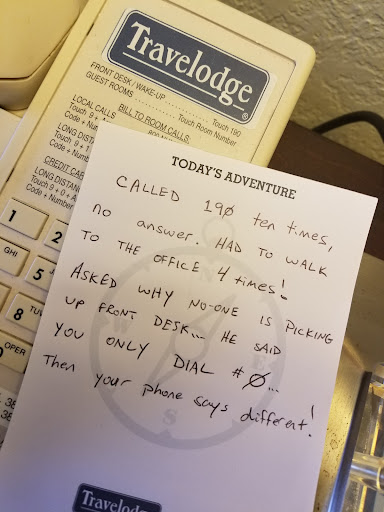 Travelodge®
FRONT DESK / WAKE-UP ............ Touch 190
GUEST ROOMS ............ Touch Room Number
BILL TO ROOM CALLS:
LOCAL CALLS
Touch 9 +
Code + Num
LONG DISTA
Touch 9 +
Code + Num
CREDIT CAR
LONG DISTAN
Touch 9 + 0 + A
Code + Numb
1
2
GHI
5
8 TU
OPER
TODAY'S ADVENTURE
CALLED 19Ø ten times,
no answer. HAD TO WALK
TO THE OFFICE 4 times!
ASKED WHY NO-ONE IS PICKING
UP FRONT DESK... HE SAID
YOU ONLY DIAL # Ø...
Then your phone says different!
Travelodge